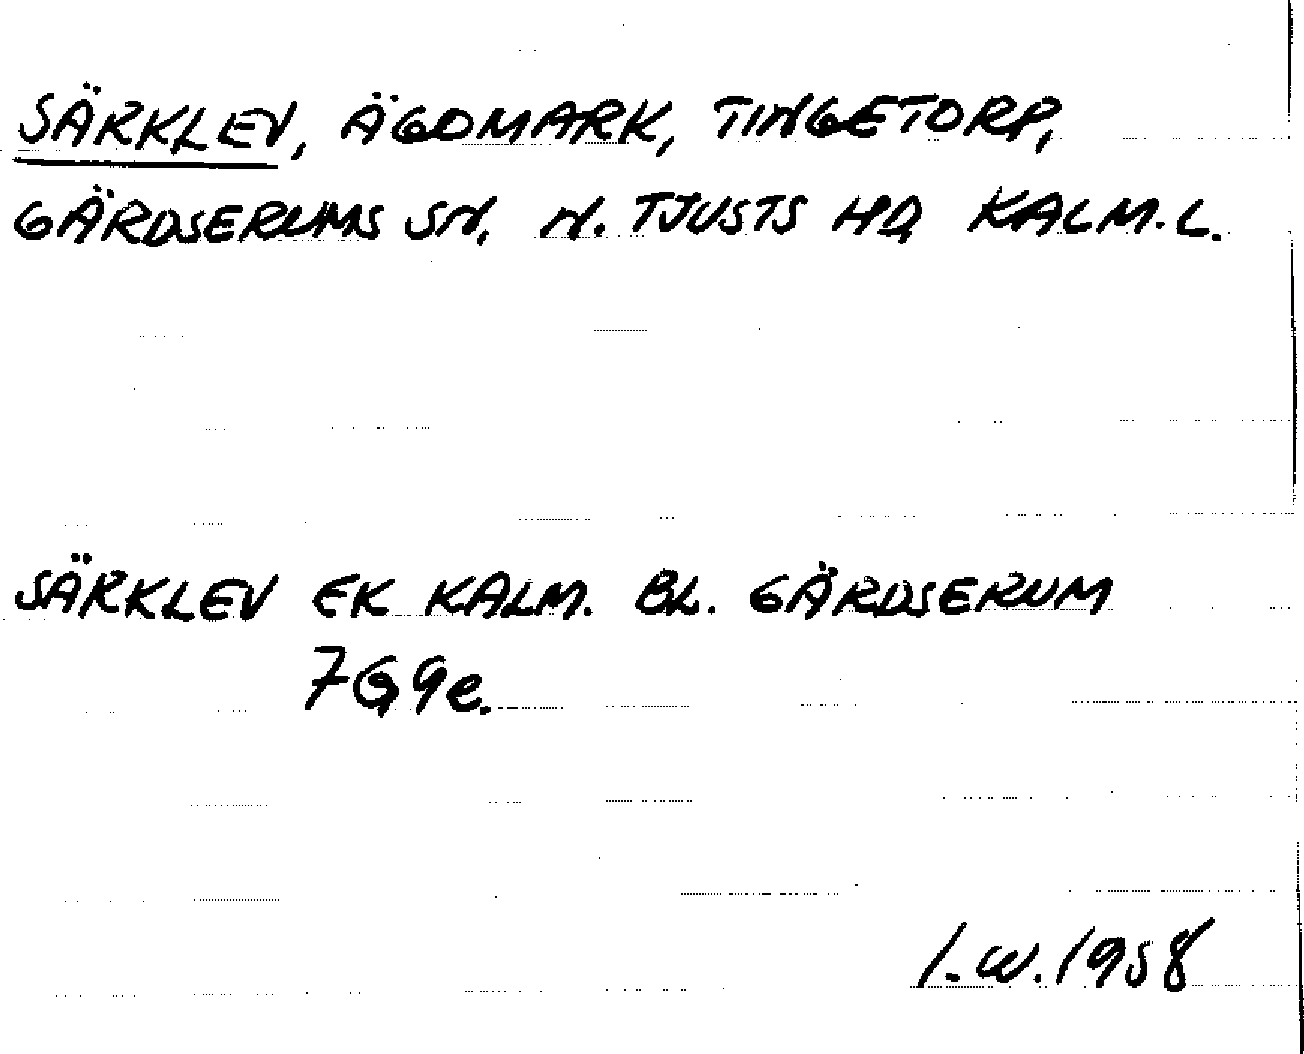 SÄRKLEV, ÄGOMARK, TINGETORP,
GÄRDSERUMS SN. N. TJUSTS HD KALM. L.
SÄRKLEV EK KALM. BL. GÄRDSERUM
7G9e.
I.W. 1958